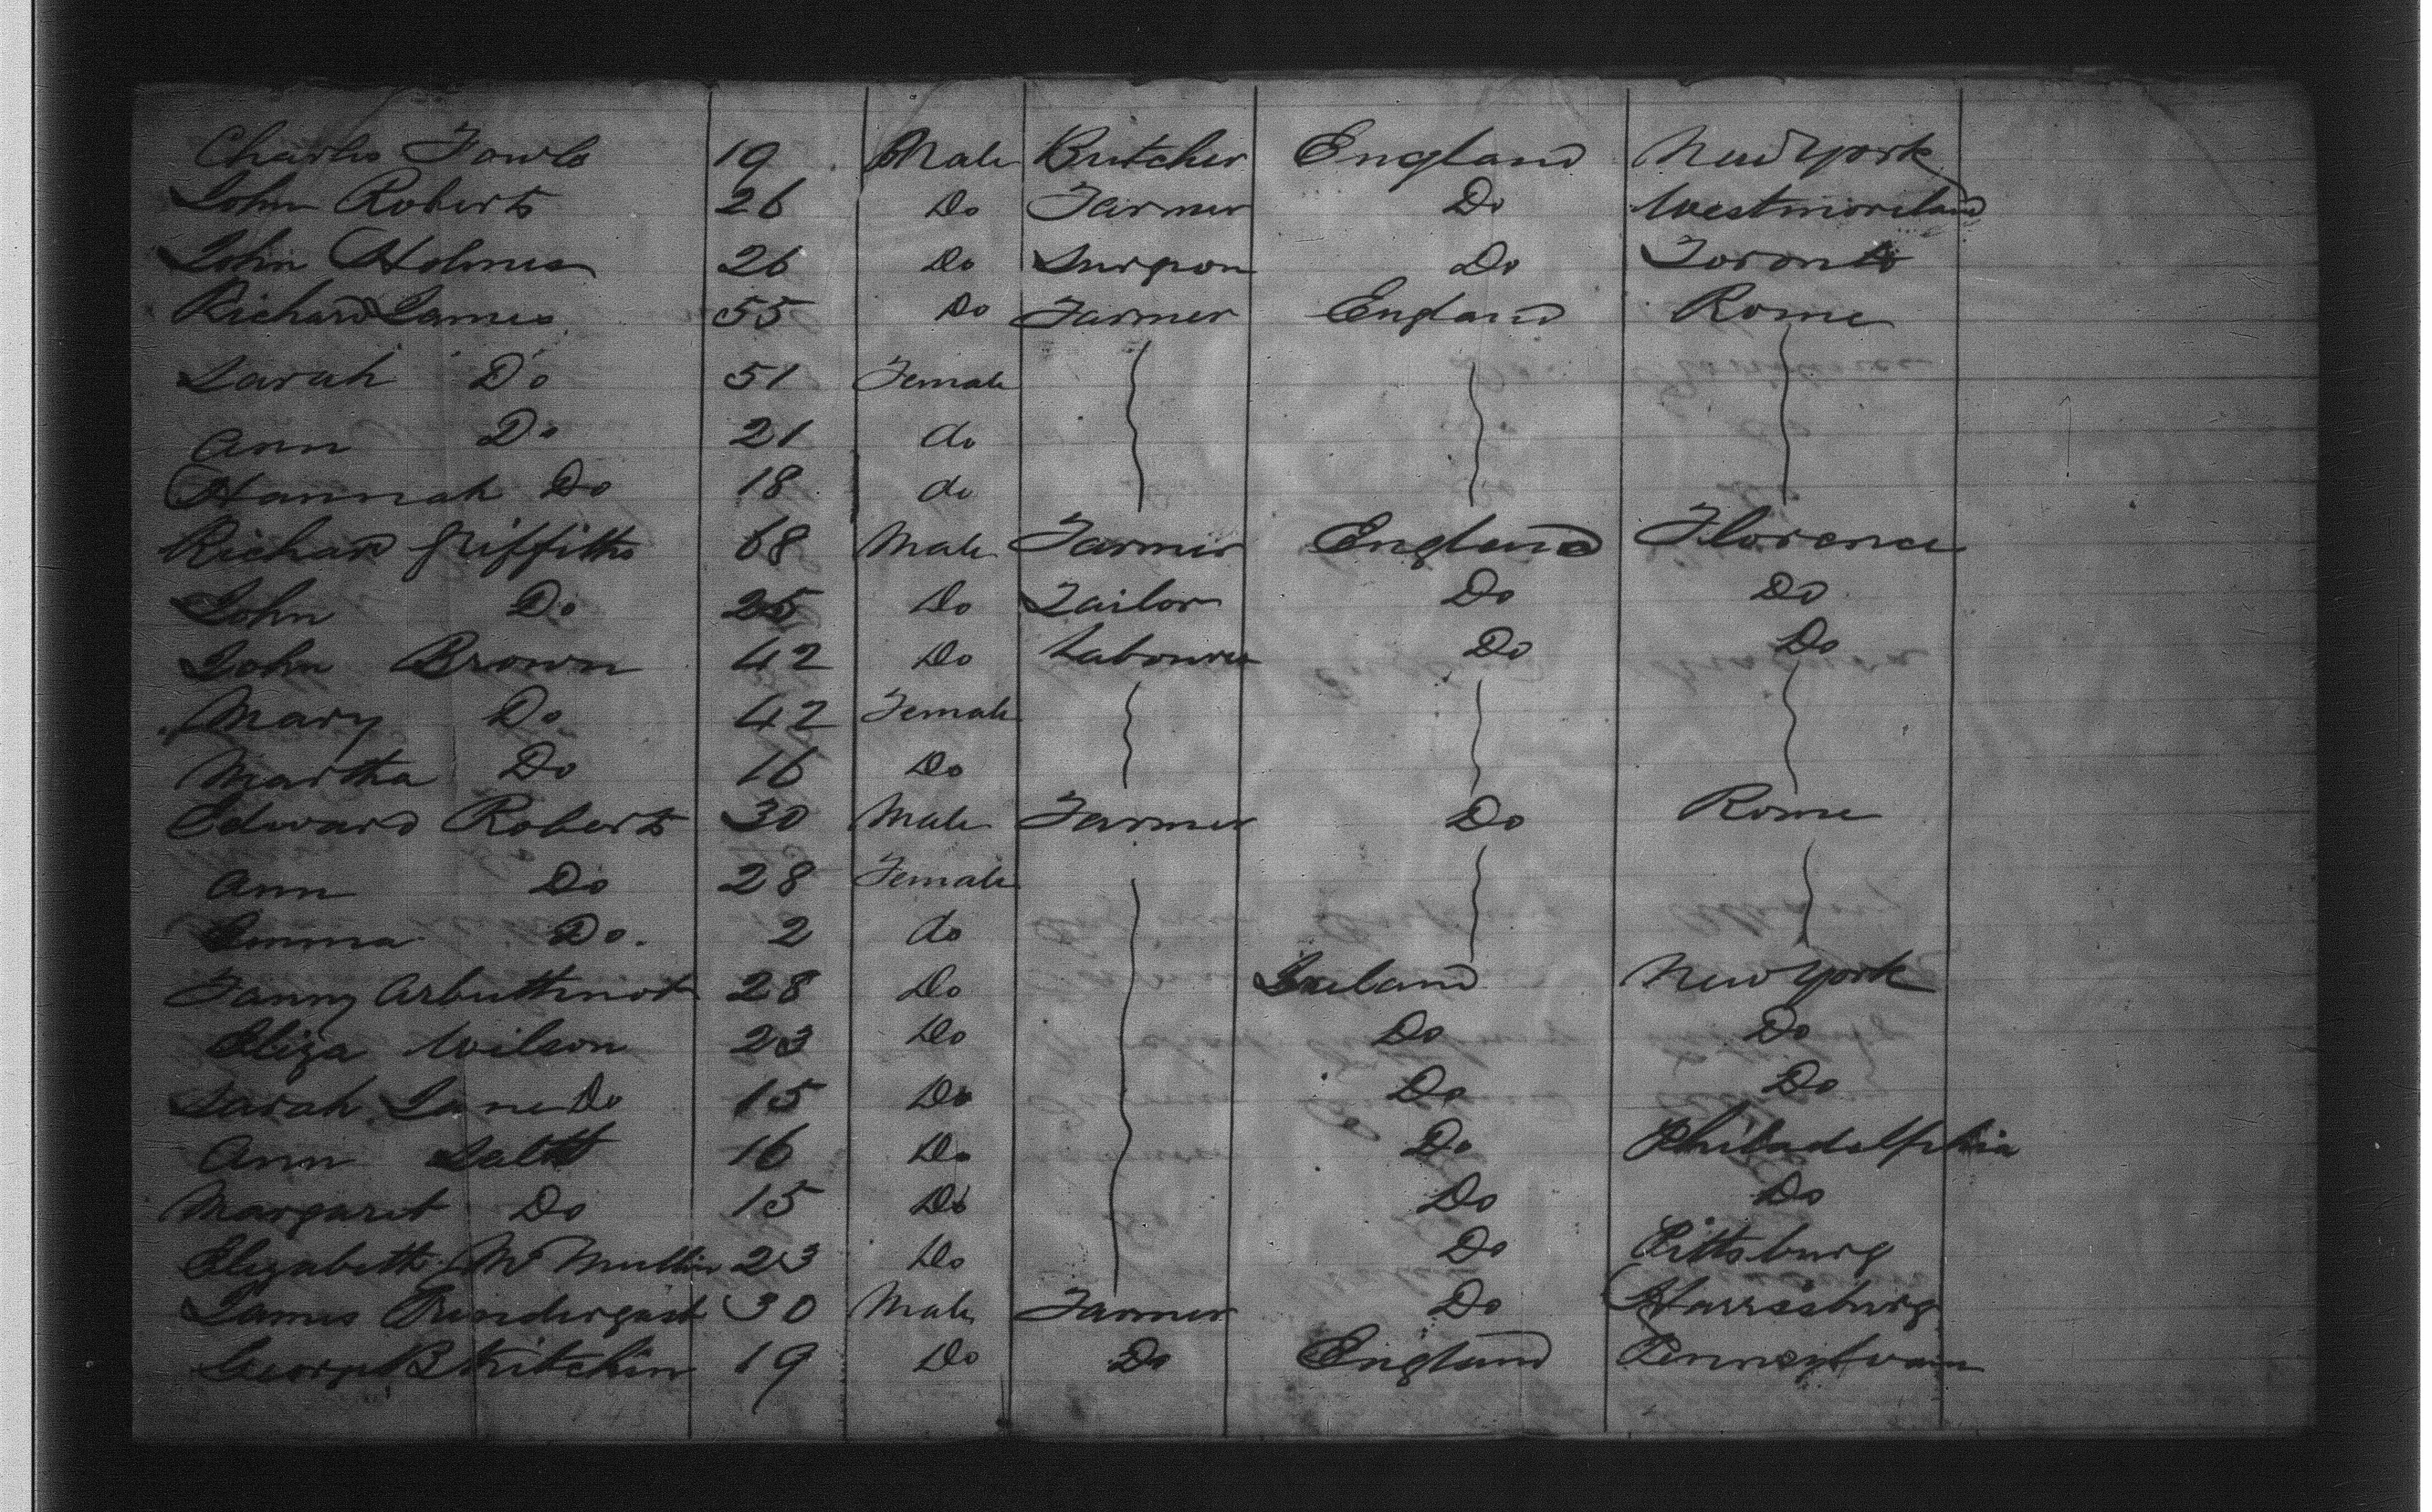 Charles Fowle 19 Male Butcher England New York
John Roberts 26 Do Farmer Do Westmoreland
John Holmes 26 Do Surgeon Do Toronto
Richard James 55 Do Farmer England Rome
Sarah Do 51 Female
Ann Do 21 do
Hannah Do 18 do
Richard Griffiths 68 Male Farmer England Florence
John Do 25 Do Tailor Do Do
John Brown 42 Do Labourer Do Do
Mary Do 42 Female
Martha Do 16 Do
Edward Roberts 30 Male Farmer Do Rome
Ann Do 28 Female
Emma Do. 2 do
Fanny Arbuthnot 28 Do Ireland New York
Eliza Wilson 23 Do Do Do
Sarah Jane Do 15 Do Do Do
Ann 16 Do Do Philadelphia
Margaret Do 15 Do Do Do
Elizabeth Mc Mullin 23 Do Do Pittsburg
James Prendergast 30 Male Farmer Do Harrisburg
George B Kitchin 19 Do Do England